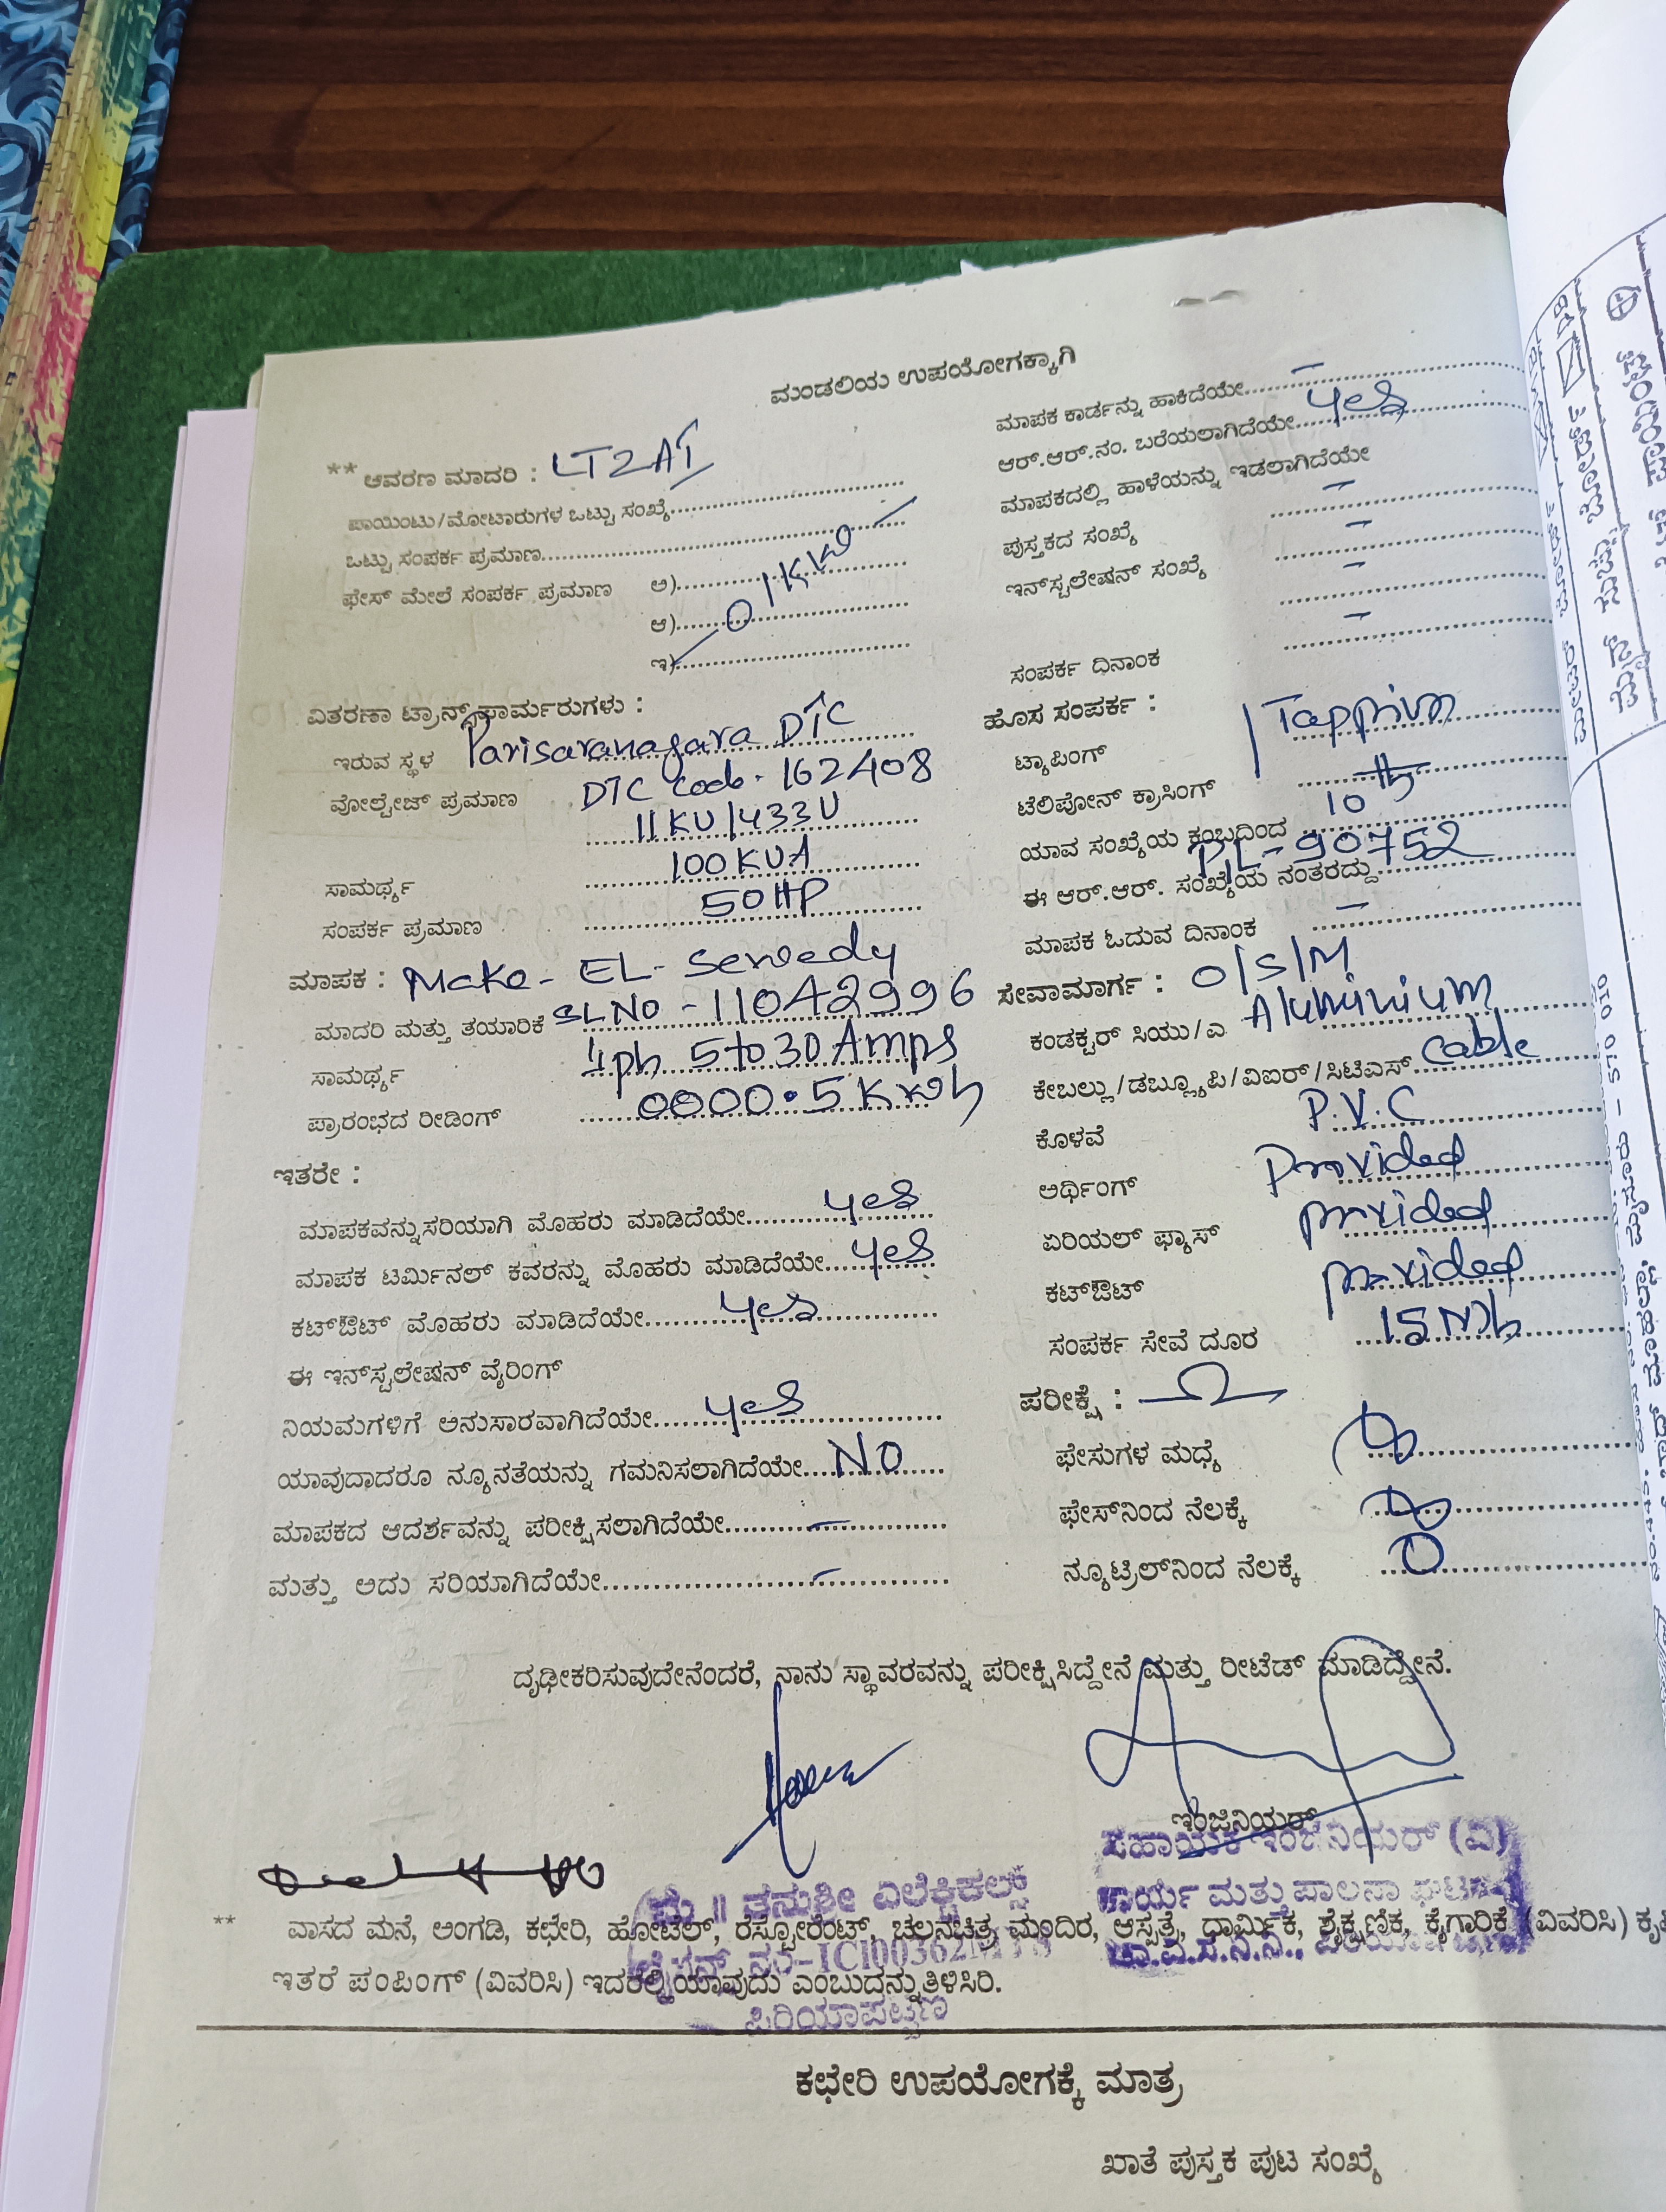 ಮಂಡಲಿಯ ಉಪಯೋಗಕ್ಕಾಗಿ
** ಆವರಣ ಮಾದರಿ : LT2AI
ಪಾಯಿಂಟು/ಮೋಟಾರುಗಳ ಒಟ್ಟು ಸಂಖ್ಯೆ
ಒಟ್ಟು ಸಂಪರ್ಕ ಪ್ರಮಾಣ
ಫೇಸ್ ಮೇಲೆ ಸಂಪರ್ಕ ಪ್ರಮಾಣ ಅ)
ಆ) 01KW
ಇ)
ವಿತರಣಾ ಟ್ರಾನ್ಸ್‌ಫಾರ್ಮರುಗಳು :
ಇರುವ ಸ್ಥಳ Parisaranagara DTC
DTC Code - 162408
ವೋಲ್ಟೇಜ್ ಪ್ರಮಾಣ 11KV/433V
ಸಾಮರ್ಥ್ಯ 100KVA
ಸಂಪರ್ಕ ಪ್ರಮಾಣ 50HP
ಮಾಪಕ : Make - EL - Sewedy
ಮಾದರಿ ಮತ್ತು ತಯಾರಿಕೆ SLNO - 11042996
ಸಾಮರ್ಥ್ಯ 1ph 5 to 30 Amps
ಪ್ರಾರಂಭದ ರೀಡಿಂಗ್ 0000.5 Kwh
ಇತರೇ :
ಮಾಪಕವನ್ನು ಸರಿಯಾಗಿ ಮೊಹರು ಮಾಡಿದೆಯೇ yes
ಮಾಪಕ ಟರ್ಮಿನಲ್ ಕವರನ್ನು ಮೊಹರು ಮಾಡಿದೆಯೇ yes
ಕಟ್‌ಔಟ್ ಮೊಹರು ಮಾಡಿದೆಯೇ yes
ಈ ಇನ್‌ಸ್ಟಲೇಷನ್ ವೈರಿಂಗ್
ನಿಯಮಗಳಿಗೆ ಅನುಸಾರವಾಗಿದೆಯೇ yes
ಯಾವುದಾದರೂ ನ್ಯೂನತೆಯನ್ನು ಗಮನಿಸಲಾಗಿದೆಯೇ NO
ಮಾಪಕದ ಆದರ್ಶವನ್ನು ಪರೀಕ್ಷಿಸಲಾಗಿದೆಯೇ -
ಮತ್ತು ಅದು ಸರಿಯಾಗಿದೆಯೇ -
ಮಾಪಕ ಕಾರ್ಡನ್ನು ಹಾಕಿದೆಯೇ -
ಆರ್.ಆರ್.ನಂ. ಬರೆಯಲಾಗಿದೆಯೇ yes
ಮಾಪಕದಲ್ಲಿ ಹಾಳೆಯನ್ನು ಇಡಲಾಗಿದೆಯೇ -
ಪುಸ್ತಕದ ಸಂಖ್ಯೆ -
ಇನ್‌ಸ್ಟಲೇಷನ್ ಸಂಖ್ಯೆ -
ಸಂಪರ್ಕ ದಿನಾಂಕ -
ಹೊಸ ಸಂಪರ್ಕ :
ಟ್ಯಾಪಿಂಗ್
ಟೆಲಿಪೋನ್ ಕ್ರಾಸಿಂಗ್
ಯಾವ ಸಂಖ್ಯೆಯ ಕಂಬದಿಂದ 10th
ಈ ಆರ್.ಆರ್. ಸಂಖ್ಯೆಯ ನಂತರದ್ದು 90752
ಮಾಪಕ ಓದುವ ದಿನಾಂಕ -
ಸೇವಾಮಾರ್ಗ : O/S/M
ಕಂಡಕ್ಟರ್ ಸಿಯು/ಎ Aluminium
ಕೇಬಲ್ಲು/ಡಬ್ಲ್ಯೂಪಿ/ವಿಐರ್/ಸಿಟಿಎಸ್ Cable
ಕೊಳವೆ P.V.C
ಅರ್ಥಿಂಗ್ Provided
ಏರಿಯಲ್ ಫ್ಯೂಸ್ provided
ಕಟ್‌ಔಟ್ provided
ಸಂಪರ್ಕ ಸೇವೆ ದೂರ
ಪರೀಕ್ಷೆ : Ω
ಫೇಸುಗಳ ಮಧ್ಯೆ
ಫೇಸ್‌ನಿಂದ ನೆಲಕ್ಕೆ
ನ್ಯೂಟ್ರಿಲ್‌ನಿಂದ ನೆಲಕ್ಕೆ 0
ದೃಢೀಕರಿಸುವುದೇನೆಂದರೆ, ನಾನು ಸ್ಥಾವರವನ್ನು ಪರೀಕ್ಷಿಸಿದ್ದೇನೆ ಮತ್ತು ರೀಟೆಡ್ ಮಾಡಿದ್ದೇನೆ.
ಇಂಜಿನಿಯರ್
ಸಹಾಯಕ ಇಂಜಿನಿಯರ್ (ವಿ)
ಕಾರ್ಯ ಮತ್ತು ಪಾಲನಾ ಘಟಕ
ಚಾ.ವಿ.ಸ.ನಿ.ನಿ.,
ಮೆ॥ ತನುಶ್ರೀ ಎಲೆಕ್ಟ್ರಿಕಲ್ಸ್
ಪಿರಿಯಾಪಟ್ಟಣ
** ವಾಸದ ಮನೆ, ಅಂಗಡಿ, ಕಛೇರಿ, ಹೋಟೆಲ್, ರೆಸ್ಟೋರೆಂಟ್, ಚಲನಚಿತ್ರ ಮಂದಿರ, ಆಸ್ಪತ್ರೆ, ಧಾರ್ಮಿಕ, ಶೈಕ್ಷಣಿಕ, ಕೈಗಾರಿಕೆ (ವಿವರಿಸಿ)
ಇತರೆ ಪಂಪಿಂಗ್ (ವಿವರಿಸಿ) ಇದರಲ್ಲಿ ಯಾವುದು ಎಂಬುದನ್ನು ತಿಳಿಸಿರಿ.
ಕಛೇರಿ ಉಪಯೋಗಕ್ಕೆ ಮಾತ್ರ
ಖಾತೆ ಪುಸ್ತಕ ಪುಟ ಸಂಖ್ಯೆ